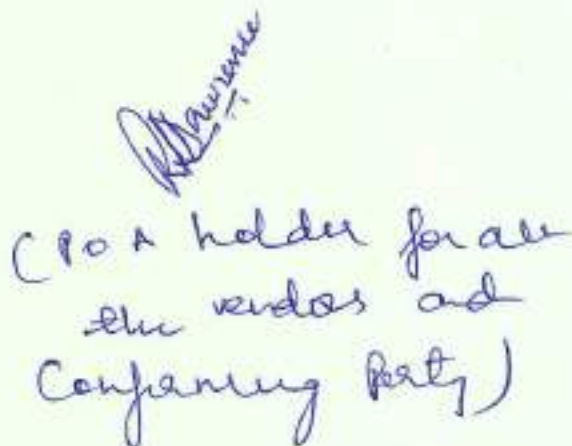 Lawrence
(POA holder for all
the vendors and
Confirming Party)